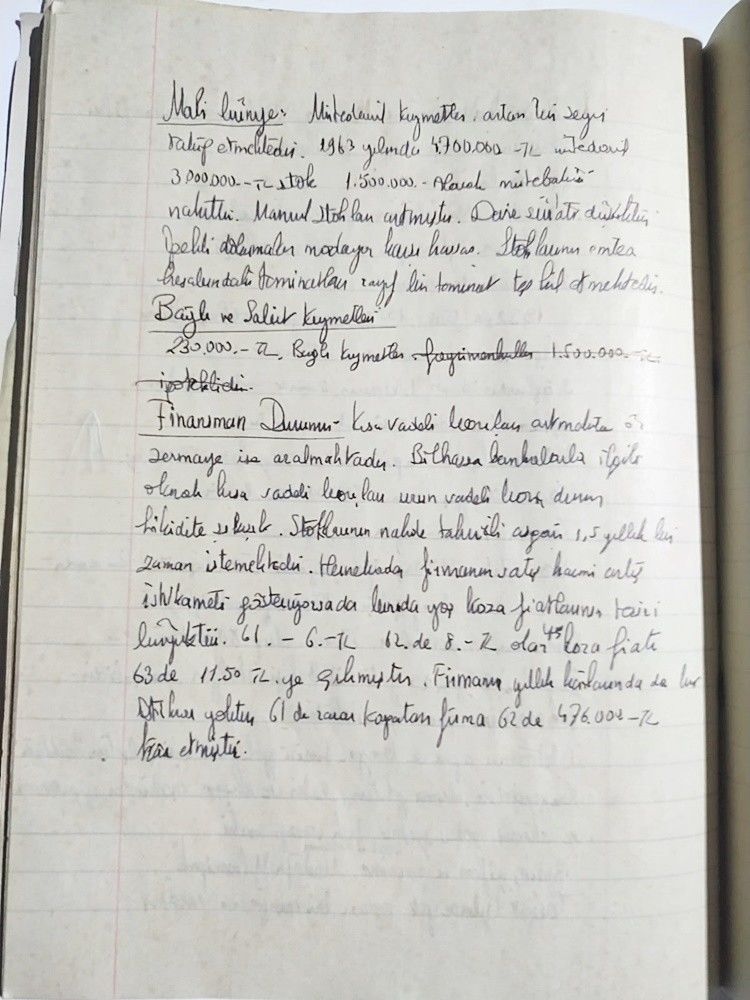 Mali bünye: Mütedavil kıymetler artan bir seyri
takip etmektedir. 1963 yılında 4.700.000 -TL mütedavil
3.000.000.-TL stok 1.500.000.- Alacak mütebakisi
nakittir. Mamul Stokları artmıştır. Devir sür'ati düşüktür
İpekli dokumalar modaya karşı hassas. Stoklarının emtea
hesabındaki teminatları zayıf bir teminat teşkil etmektedir.
Bağlı ve Sabit Kıymetler
230.000.-TL. Bağlı kıymetler. gayrimenkuller 1.500.000.-TL
ipoteklidir.
Finansman Durumu- Kısa vadeli borçları artmakta öz
sermaye ise azalmaktadır. Bilhassa bankalarla ilgili
olarak kısa vadeli borçları uzun vadeli borç durumu
likidite. Stoklarının nakde tahvili asgari 1,5 yıllık bir
zaman istemektedir. Hernekadar firmanın satış hacmi artış
istikameti gösteriyorsada bunda yaş koza fiatlarının tesiri
büyüktür. 61. - 6.-TL 62.de 8.-TL olan koza fiatı
63 de 11.50 TL.ye çıkmıştır. Firmanın yıllık kârlarında da bir
istikrar yoktur 61 de zarar kapatan firma 62 de 476.000 -TL
kâr etmiştir.